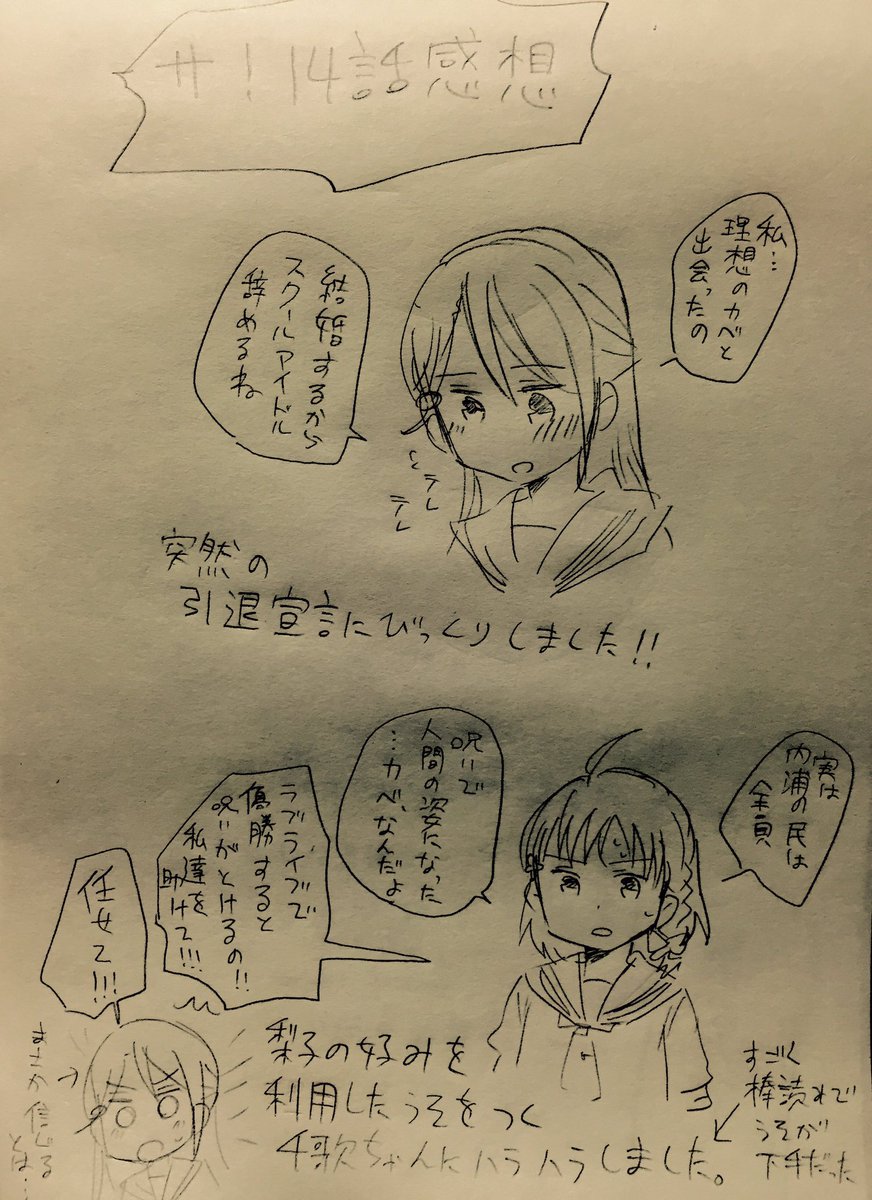 サ！14話感想
私…
理想のカベと
出会ったの
結婚するから
スクールアイドル
辞めるね
テレ
テレ
突然の
引退宣言にびっくりしました!!
実は
内浦の民は
全員
呪いで
人間の姿になった
…カベ、なんだよ
ラブライブで
優勝すると
呪いがとけるの!!
私達を
助けて!!!
任せて!!!
まさか信じる
とは…
梨子の好みを
利用したうそをつく
千歌ちゃんにハラハラしました。
すごく
棒読みで
うそが
下手だった